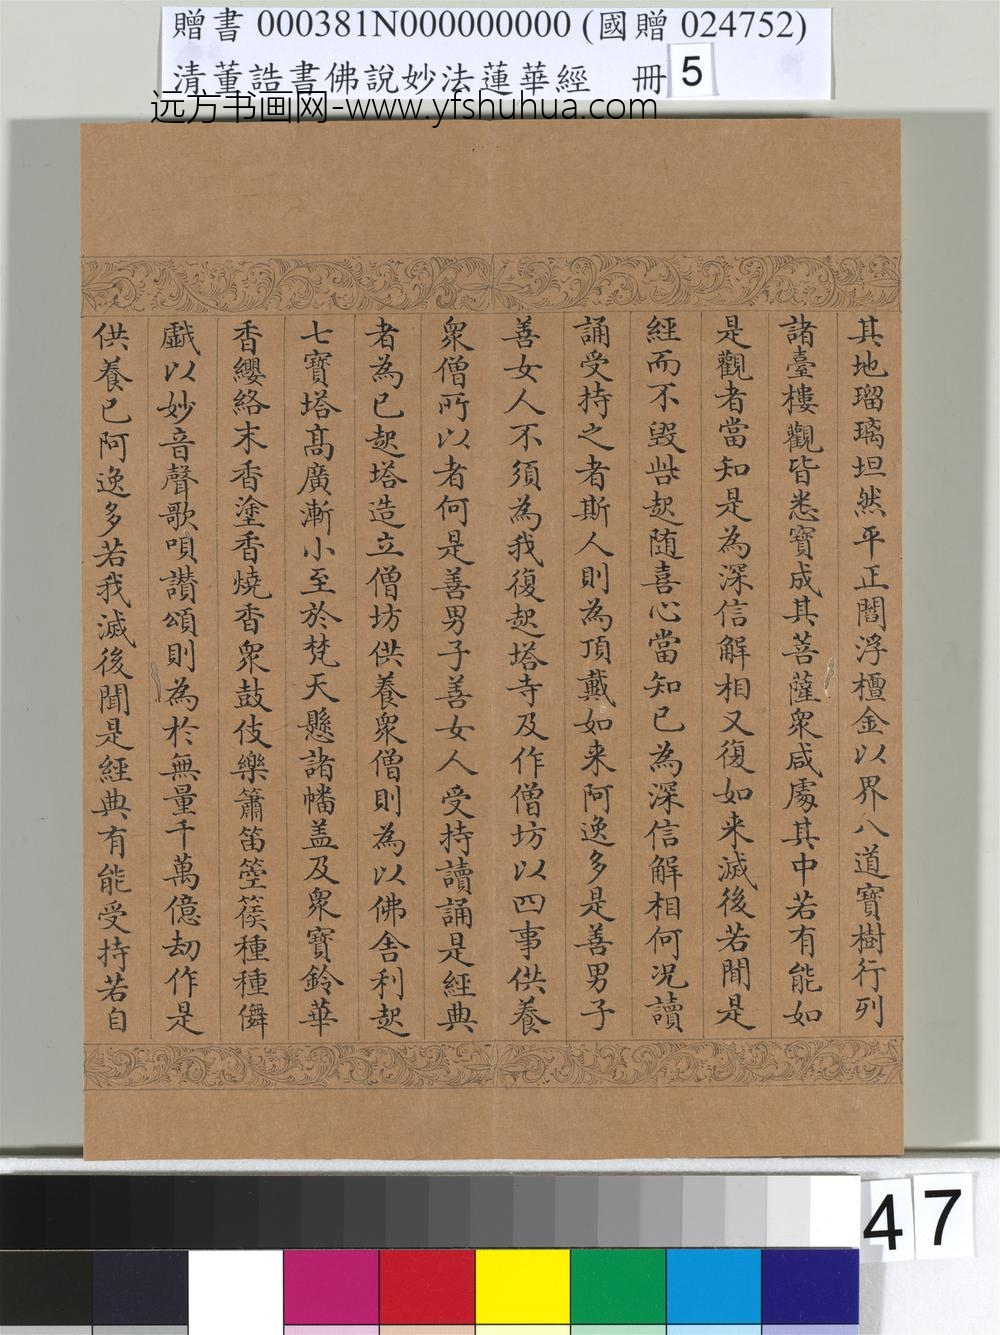 贈書 000381N000000000 (國贈 024752)
清董誥書佛說妙法蓮華經 冊 5
远方书画网-www.yfshuhua.com
其地瑠璃坦然平正閻浮檀金以界八道寶樹行列
諸臺樓觀皆悉寶成其菩薩衆咸處其中若有能如
是觀者當知是為深信解相又復如来滅後若聞是
經而不毀呰起随喜心當知已為深信解相何况讀
誦受持之者斯人則為頂戴如来阿逸多是善男子
善女人不須為我復起塔寺及作僧坊以四事供養
衆僧所以者何是善男子善女人受持讀誦是經典
者為已起塔造立僧坊供養衆僧則為以佛舍利起
七寶塔髙廣漸小至於梵天懸諸幡盖及衆寶鈴華
香纓絡末香塗香燒香衆鼓伎樂簫笛箜篌種種儛
戯以妙音聲歌唄讃頌則為於無量千萬億劫作是
供養已阿逸多若我滅後聞是經典有能受持若自
47